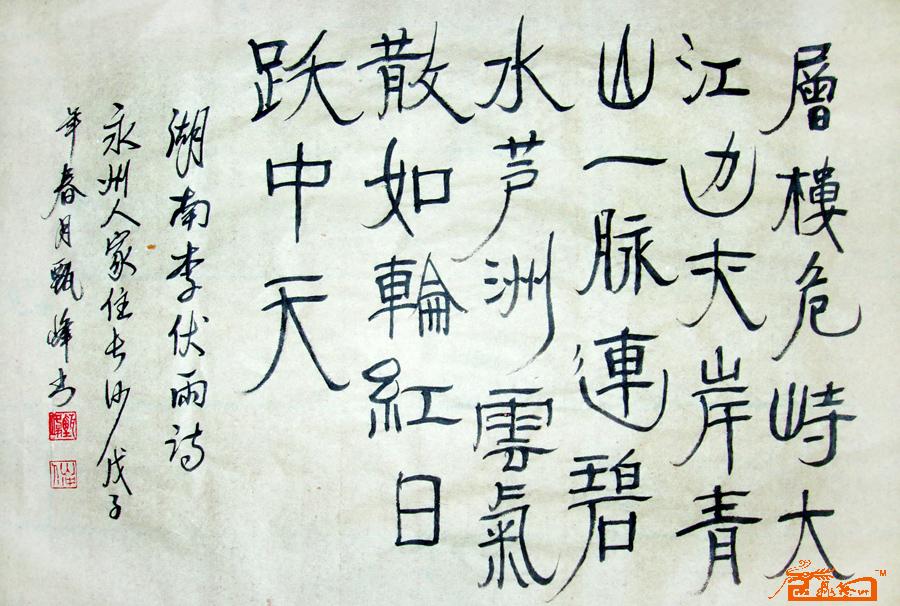 層樓危峙大
江边夹岸青
山一脉連碧
水芦洲雲氣
散如輪紅日
跃中天
湖南李伏雨诗
永州人家住长沙戊子
年春月甄峰书